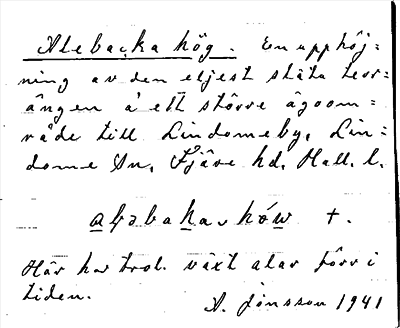 Alebacka hög. En upphöj=
ning av den eljest släta terr=
ängen å ett större ägoom=
råde till Lindomeby, Lin=
dome Sn, Fjäre hd. Hall. l.
hów +.
Här har trol. växt alar förr i
tiden.
A. Jönsson 1941